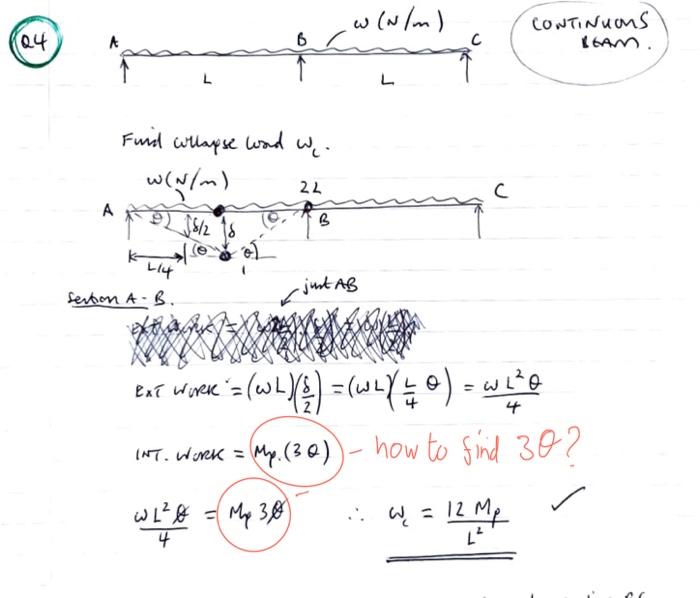 Q4
w (N/m)
CONTINUOUS
BEAM.
A B C
L L
Find collapse load w_c.
w(N/m)
2L
A B C
θ δ/2 δ θ
θ θ
L/4
Section A-B.
just AB
EXT WORK = (wL)(δ/2) = (wL)(L/4 θ) = wL²θ/4
INT. WORK = Mp.(3θ) - how to find 3θ?
wL²θ/4 = Mp 3θ ∴ w_c = 12 Mp/L² ✓